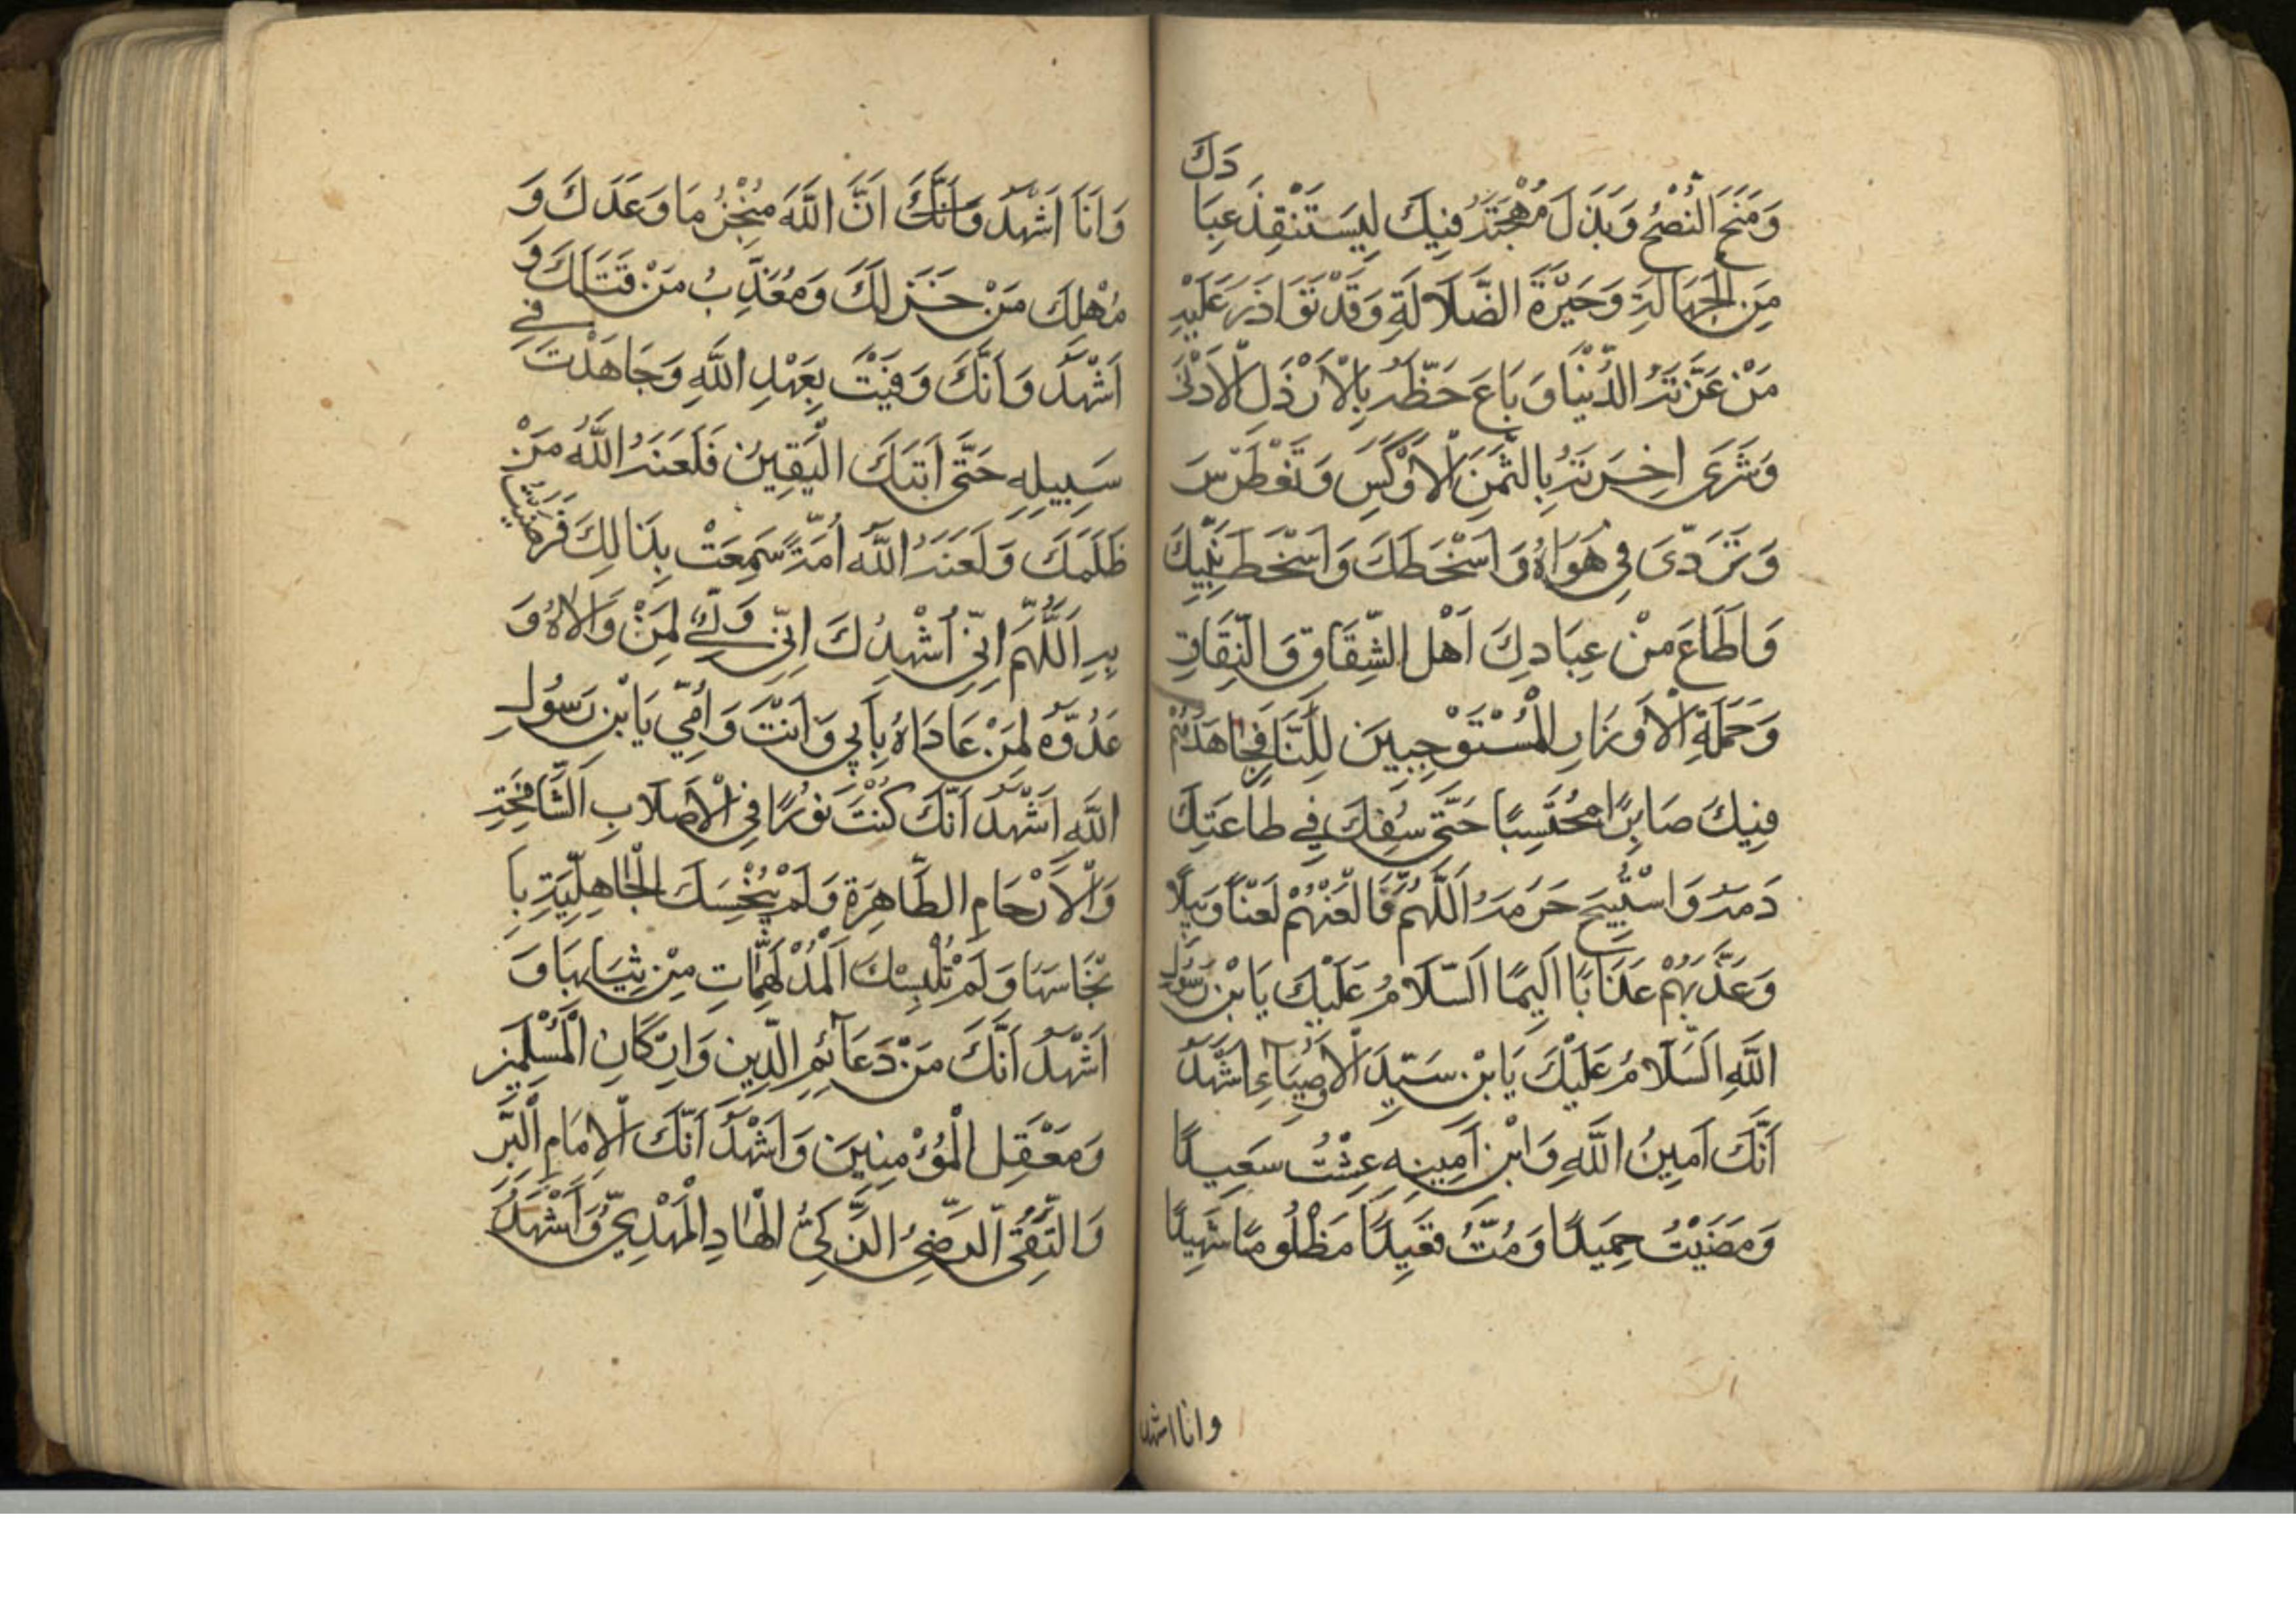 وَمَنَحَ النُّصْحَ وَبَذَلَ مُهْجَتَهُ فِيكَ لِيَسْتَنْقِذَ عِبَا
دَكَ
مِنَ الْجَهَالَةِ وَحَيْرَةَ الضَّلَالَةِ وَقَدْ تَوَاذَرَ عَلَيْهِ
مَنْ غَرَّتْهُ الدُّنْيَا وَبَاعَ حَظَّهُ بِالْاَرْذَلِ الْاَدْنٰى
وَشَرٰى اٰخِرَتَهُ بِالثَّمَنِ الْاَوْكَسِ وَتَغَطْرَسَ
وَتَرَدّٰى فِي هَوَاهُ وَاَسْخَطَكَ وَاَسْخَطَ نَبِيَّكَ
وَاَطَاعَ مِنْ عِبَادِكَ اَهْلَ الشِّقَاقِ وَالنِّفَاقِ
وَحَمَلَةَ الْاَوْزَارِ الْمُسْتَوْجِبِينَ لِلنَّارِ فَجَاهَدَهُمْ
فِيكَ صَابِرًا مُحْتَسِبًا حَتّٰى سُفِكَ فِي طَاعَتِكَ
دَمُهُ وَاسْتُبِيحَ حَرَمُهُ اَللّٰهُمَّ فَالْعَنْهُمْ لَعْنًا وَبِيلًا
وَعَذِّبْهُمْ عَذَابًا اَلِيمًا اَلسَّلَامُ عَلَيْكَ يَا بْنَ رَسُولِ
اللّٰهِ اَلسَّلَامُ عَلَيْكَ يَا بْنَ سَيِّدِ الْاَوْصِيَآءِ اَشْهَدُ
اَنَّكَ اَمِينُ اللّٰهِ وَابْنُ اَمِينِهِ عِشْتَ سَعِيدًا
وَمَضَيْتَ حَمِيدًا وَمُتَّ فَقِيدًا مَظْلُومًا شَهِيدًا
وانا اشهد
وَاَنَا اَشْهَدُ وَاَنَّكَ اَنَّ اللّٰهَ مُنْجِزُ مَا وَعَدَكَ وَ
مُهْلِكُ مَنْ خَذَلَكَ وَمُعَذِّبُ مَنْ قَتَلَكَ وَ
اَشْهَدُ وَاَنَّكَ وَفَيْتَ بِعَهْدِ اللّٰهِ وَجَاهَدْتَ فِي
سَبِيلِهِ حَتّٰى اَتٰيكَ الْيَقِينُ فَلَعَنَهُ اللّٰهُ مَنْ
ظَلَمَكَ وَلَعَنَهُ اللّٰهُ اُمَّةً سَمِعَتْ بِذَالِكَ فَرَضِيَتْ
بِهِ اَللّٰهُمَّ اِنِّي اُشْهِدُكَ اِنِّي وَلِيٌّ لِمَنْ وَالَاهُ وَ
عَدُوٌّهُ لِمَنْ عَادَاهُ بِاَبِي وَاَنْتَ وَاُمِّي يَا بْنَ رَسُولِ
اللّٰهِ اَشْهَدُ اَنَّكَ كُنْتَ نُورًا فِي الْاَصْلَابِ الشَّامِخَةِ
وَالْاَرْحَامِ الطَّاهِرَةِ وَلَمْ يُنْجِسْكَ الْجَاهِلِيَّةِ بِاَ
نْجَاسِهَا وَلَمْ تُلْبِسْكَ الْمُدْلَهِمَّاتِ مِنْ ثِيَابِهَا وَ
اَشْهَدُ اَنَّكَ مِنْ دَعَآئِمِ الدِّينِ وَاَرْكَانِ الْمُسْلِمِينَ
وَمَعْقِلِ الْمُؤْمِنِينَ وَاَشْهَدُ اَنَّكَ الْاِمَامُ الْبَرُّ
وَالتَّقِيُّ الرَّضِيُّ الزَّكِيُّ الْهَادِ الْمَهْدِيُّ وَاَشْهَدُ